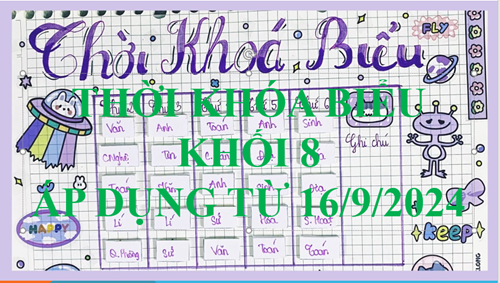 FLY
Thời Khoá Biểu
THỜI KHÓA BIỂU
Văn Anh Toán Anh Sinh
Ghi chú
KHỐI 8
C.Nghệ Tin
Toán Anh
ÁP DỤNG TỪ 16/9/2024
Lí Lí Sử Hóa S.Hoạt
HAPPY keep
Q.Phòng Sử Văn Toán Toán